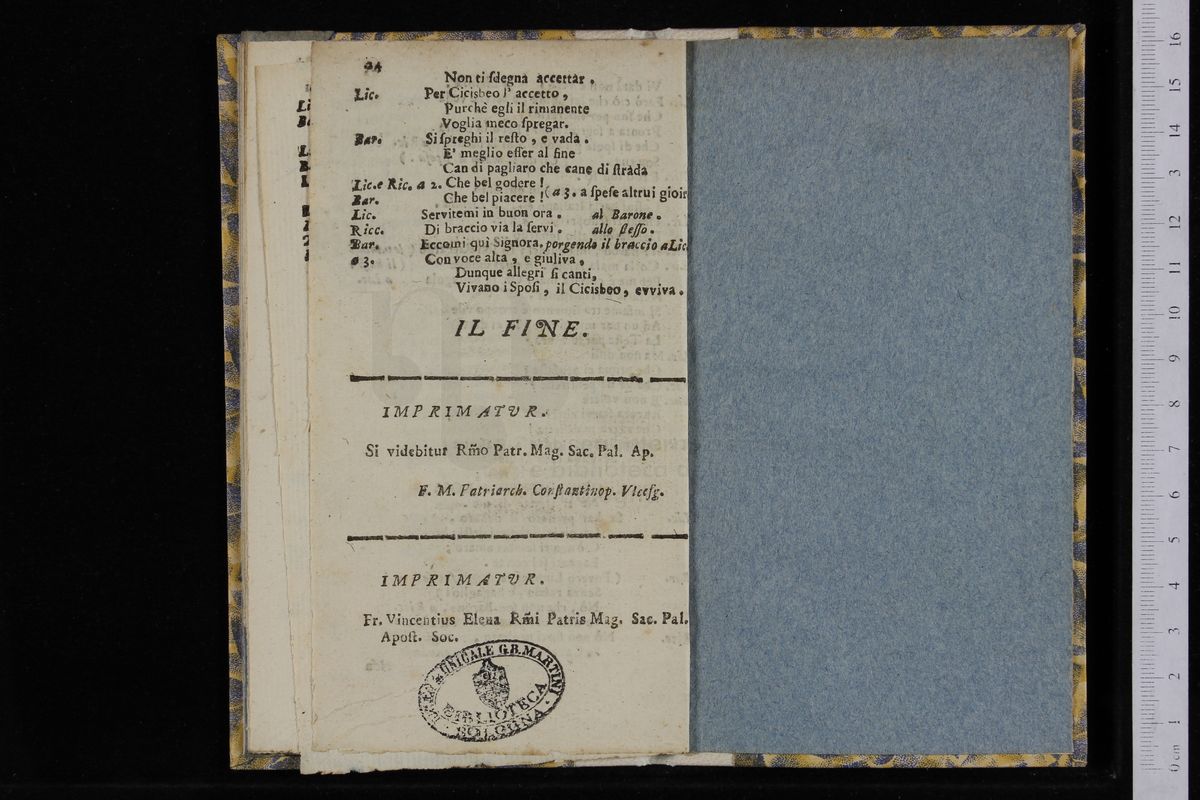 24
Non ti ſdegna accettar .
Lic. Per Cicisbeo l' accetto ,
Purchè egli il rimanente
Voglia meco ſpregar.
Bar. Si ſpreghi il reſto , e vada .
E' meglio eſſer al fine
Can di pagliaro che cane di ſtrada
Lic. e Ric. a 2. Che bel godere !
Bar. Che bel piacere ! ( a 3. a ſpeſe altrui gioir
Lic. Servitemi in buon ora . al Barone .
Ricc. Di braccio via la ſervi . allo ſteſſo .
Bar. Eccomi quì Signora. porgendo il braccio a Lic
a 3. Con voce alta , e giuliva .
Dunque allegri ſi canti,
Vivano i Spoſi , il Cicisbeo , evviva .
IL FINE.
IMPRIMATVR.
Si videbitur Rm̃o Patr. Mag. Sac. Pal. Ap.
F. M. Patriarch. Conſtantinop. Viceſg.
IMPRIMATVR.
Fr. Vincentius Elena Rm̃i Patris Mag. Sac. Pal.
Apoſt. Soc.
LICEO MUSICALE G.B. MARTINI
BIBLIOTECA
BOLOGNA
0 cm 1 2 3 4 5 6 7 8 9 10 11 12 13 14 15 16